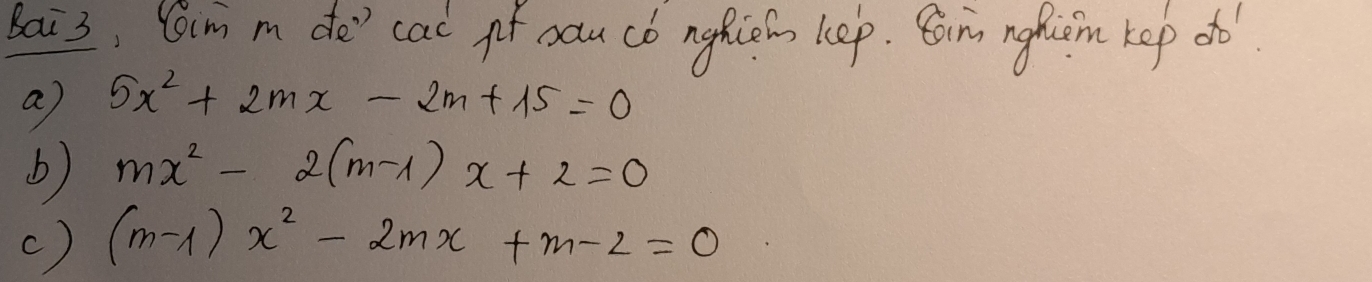 Bài 3, Tìm m để các pt sau có nghiệm kép. Tìm nghiệm kép đó.
a) 5x² + 2mx - 2m + 15 = 0
b) mx² - 2(m-1) x + 2 = 0
c) (m-1) x² - 2mx + m - 2 = 0.